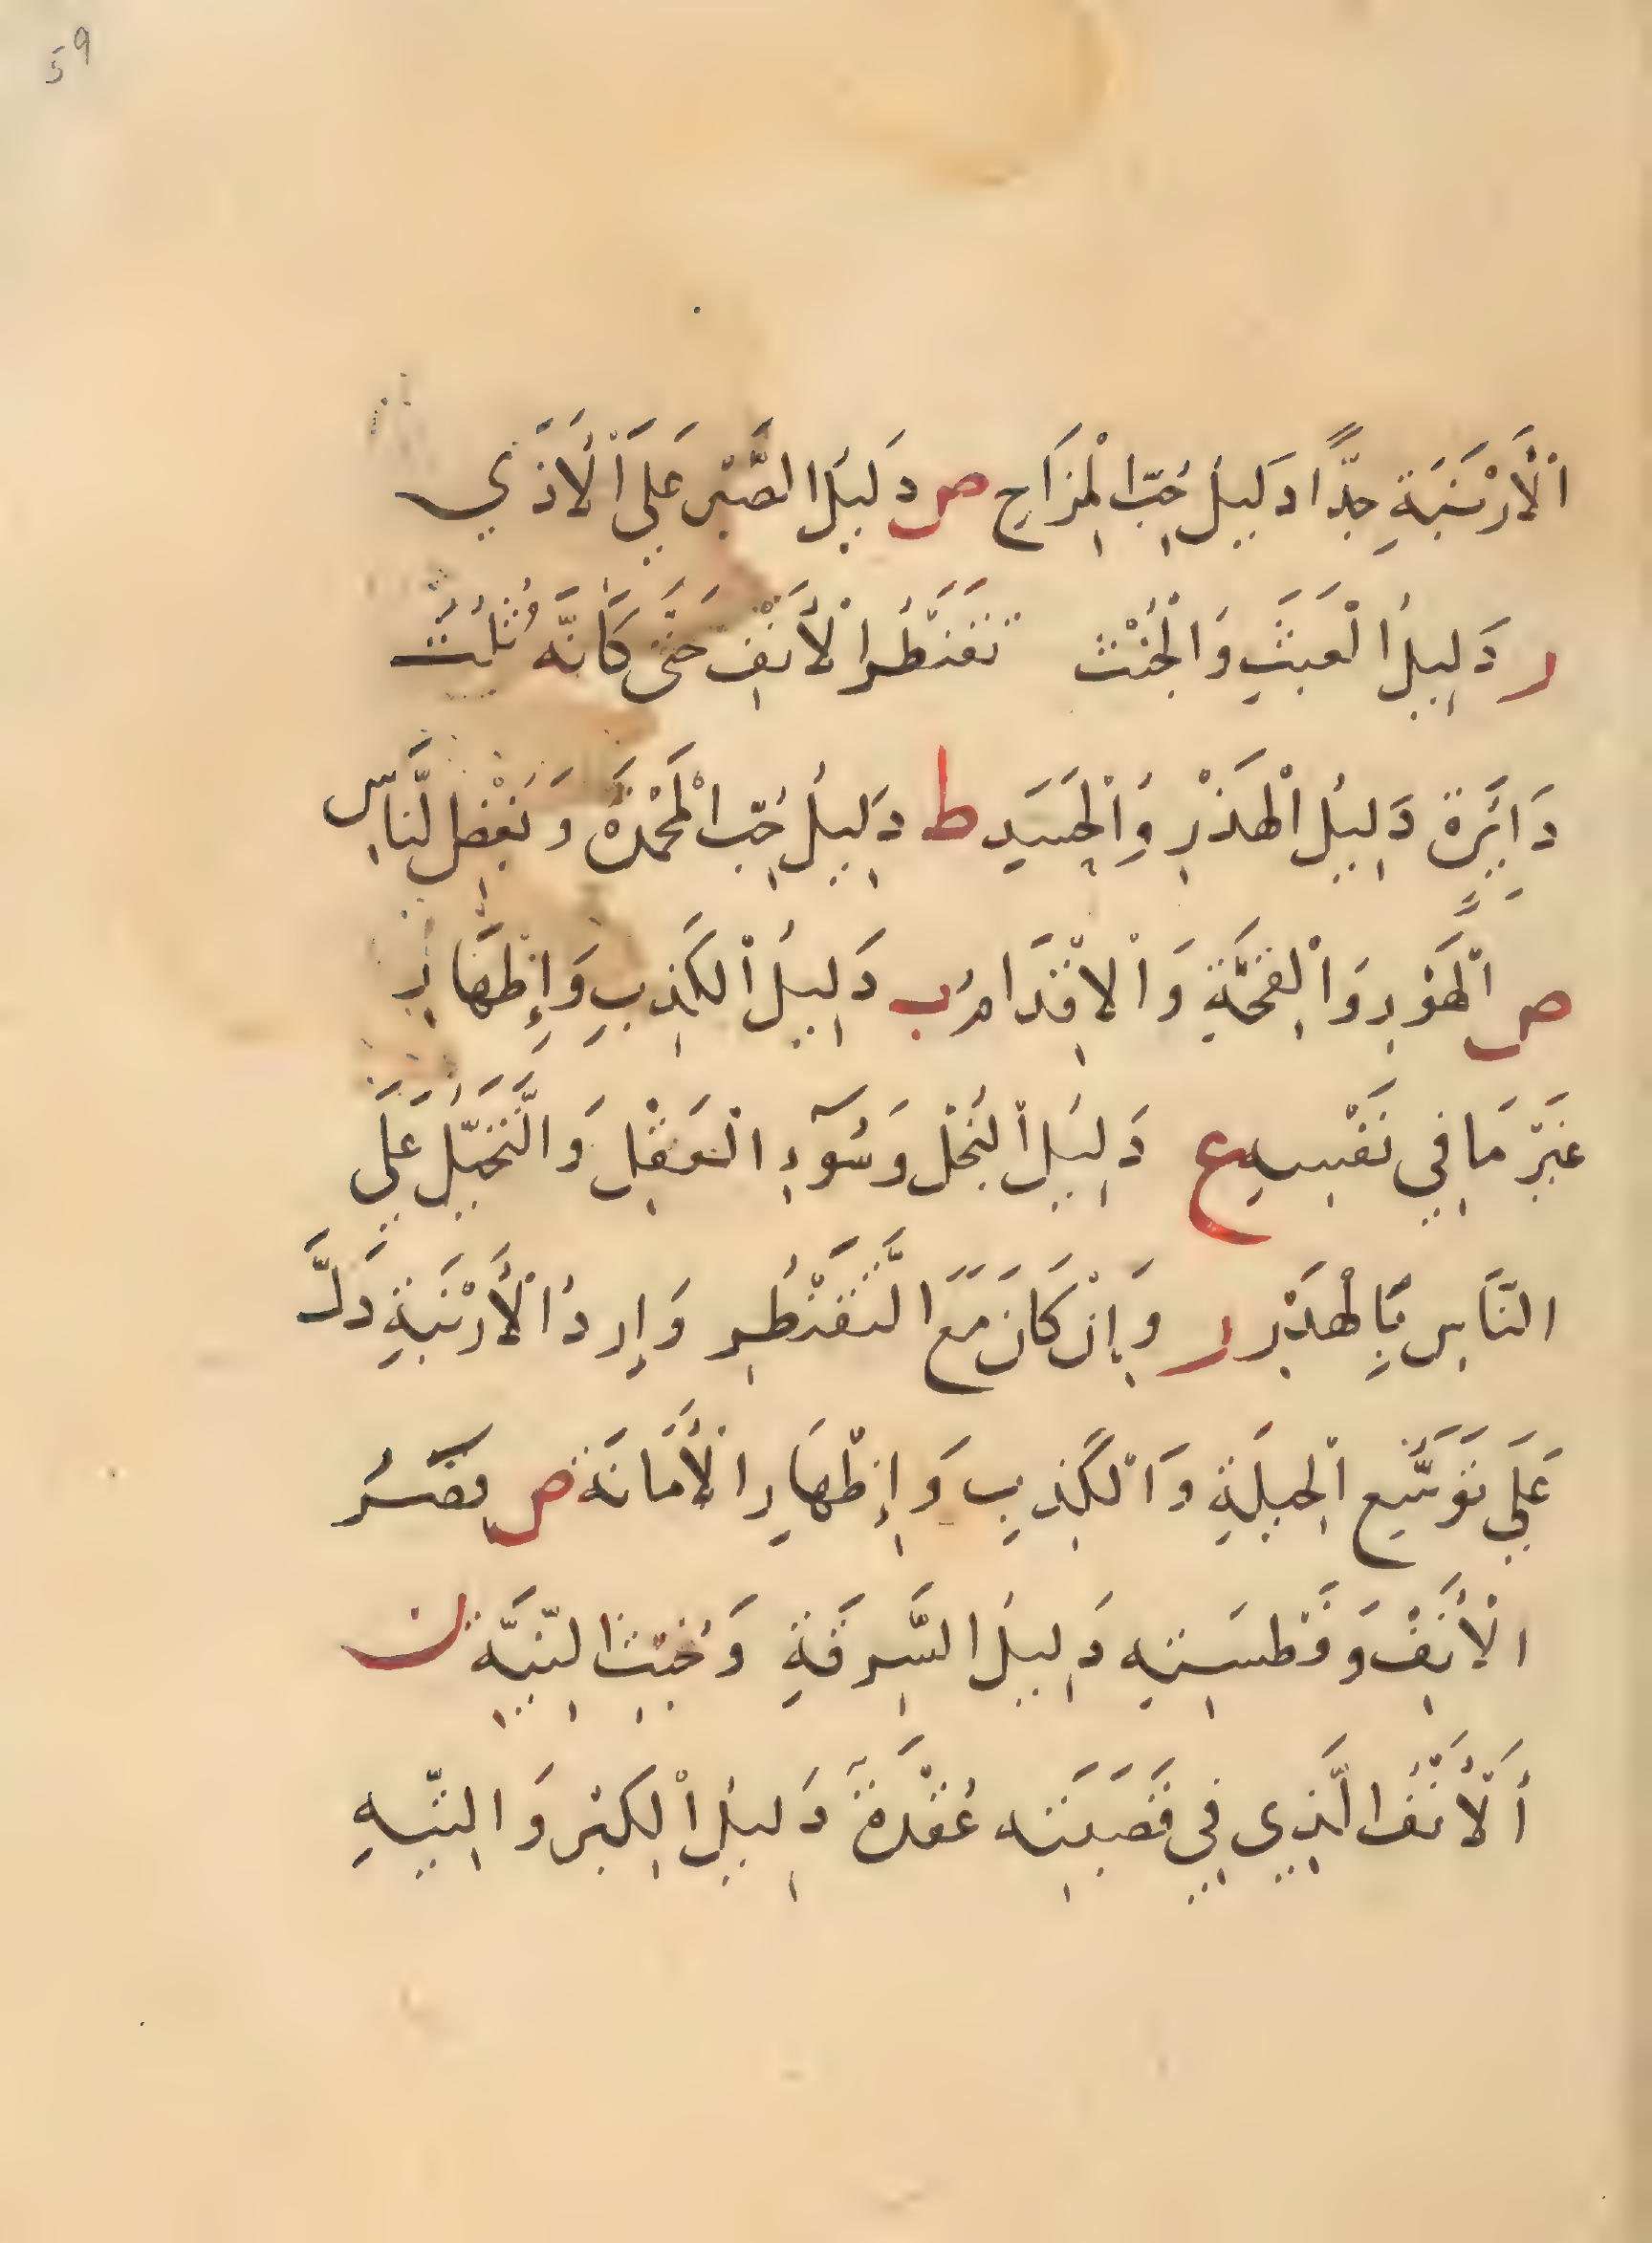 59
الْأَرْنَبَةِ جِدًّا دَلِيلُ حُبِّ الْمِزَاحِ ص دَلِيلُ الصَّبْرِ عَلَى الْأَذَي
ر دَلِيلُ الْعَبَثِ وَالْخُنْث تَقَنْطُرُ الْأَنْفِ حَتَّى كَأَنَّهُ ثُلُثُ
دَائِرَةٍ دَلِيلُ الْهَذَرِ وَالْحَسَدِ ط دَلِيلُ حُبِّ الْمَحْمَدَةِ وَبُغْضِ النَّاسِ
ص الْهَوَرِ وَالْقِحَّةِ وَالْاِقْدَامِ ب دَلِيلُ الْكَذِبِ وَإِظْهَارِ
غَيْرِ مَا فِي نَفْسِهِ ع دَلِيلُ الْبُخْلِ وَسُوءِ الْعَقْلِ وَالتَّحَيُّلِ عَلَى
النَّاسِ بِالْهَذَرِ ر وَإِنْ كَانَ مَعَ التَّقَنْطُرِ وَارِدُ الْأَرْنَبَةِ دَلَّ
عَلَي تَوَسُّعِ الْحِيلَةِ وَالْكَذِبِ وَإِظْهَارِ الْأَمَانَةِ ص قِصَرُ
الْأَنْفِ وَفَطْسَتِهِ دَلِيلُ السَّرِقَةِ وَخُبْثِ النِّيَّةِ ن
أَلْأَنْفُ الَّذِي فِي قَصَبَتِهِ عُقْدَةٌ دَلِيلُ الْكِبْرِ وَالتِّيهِ